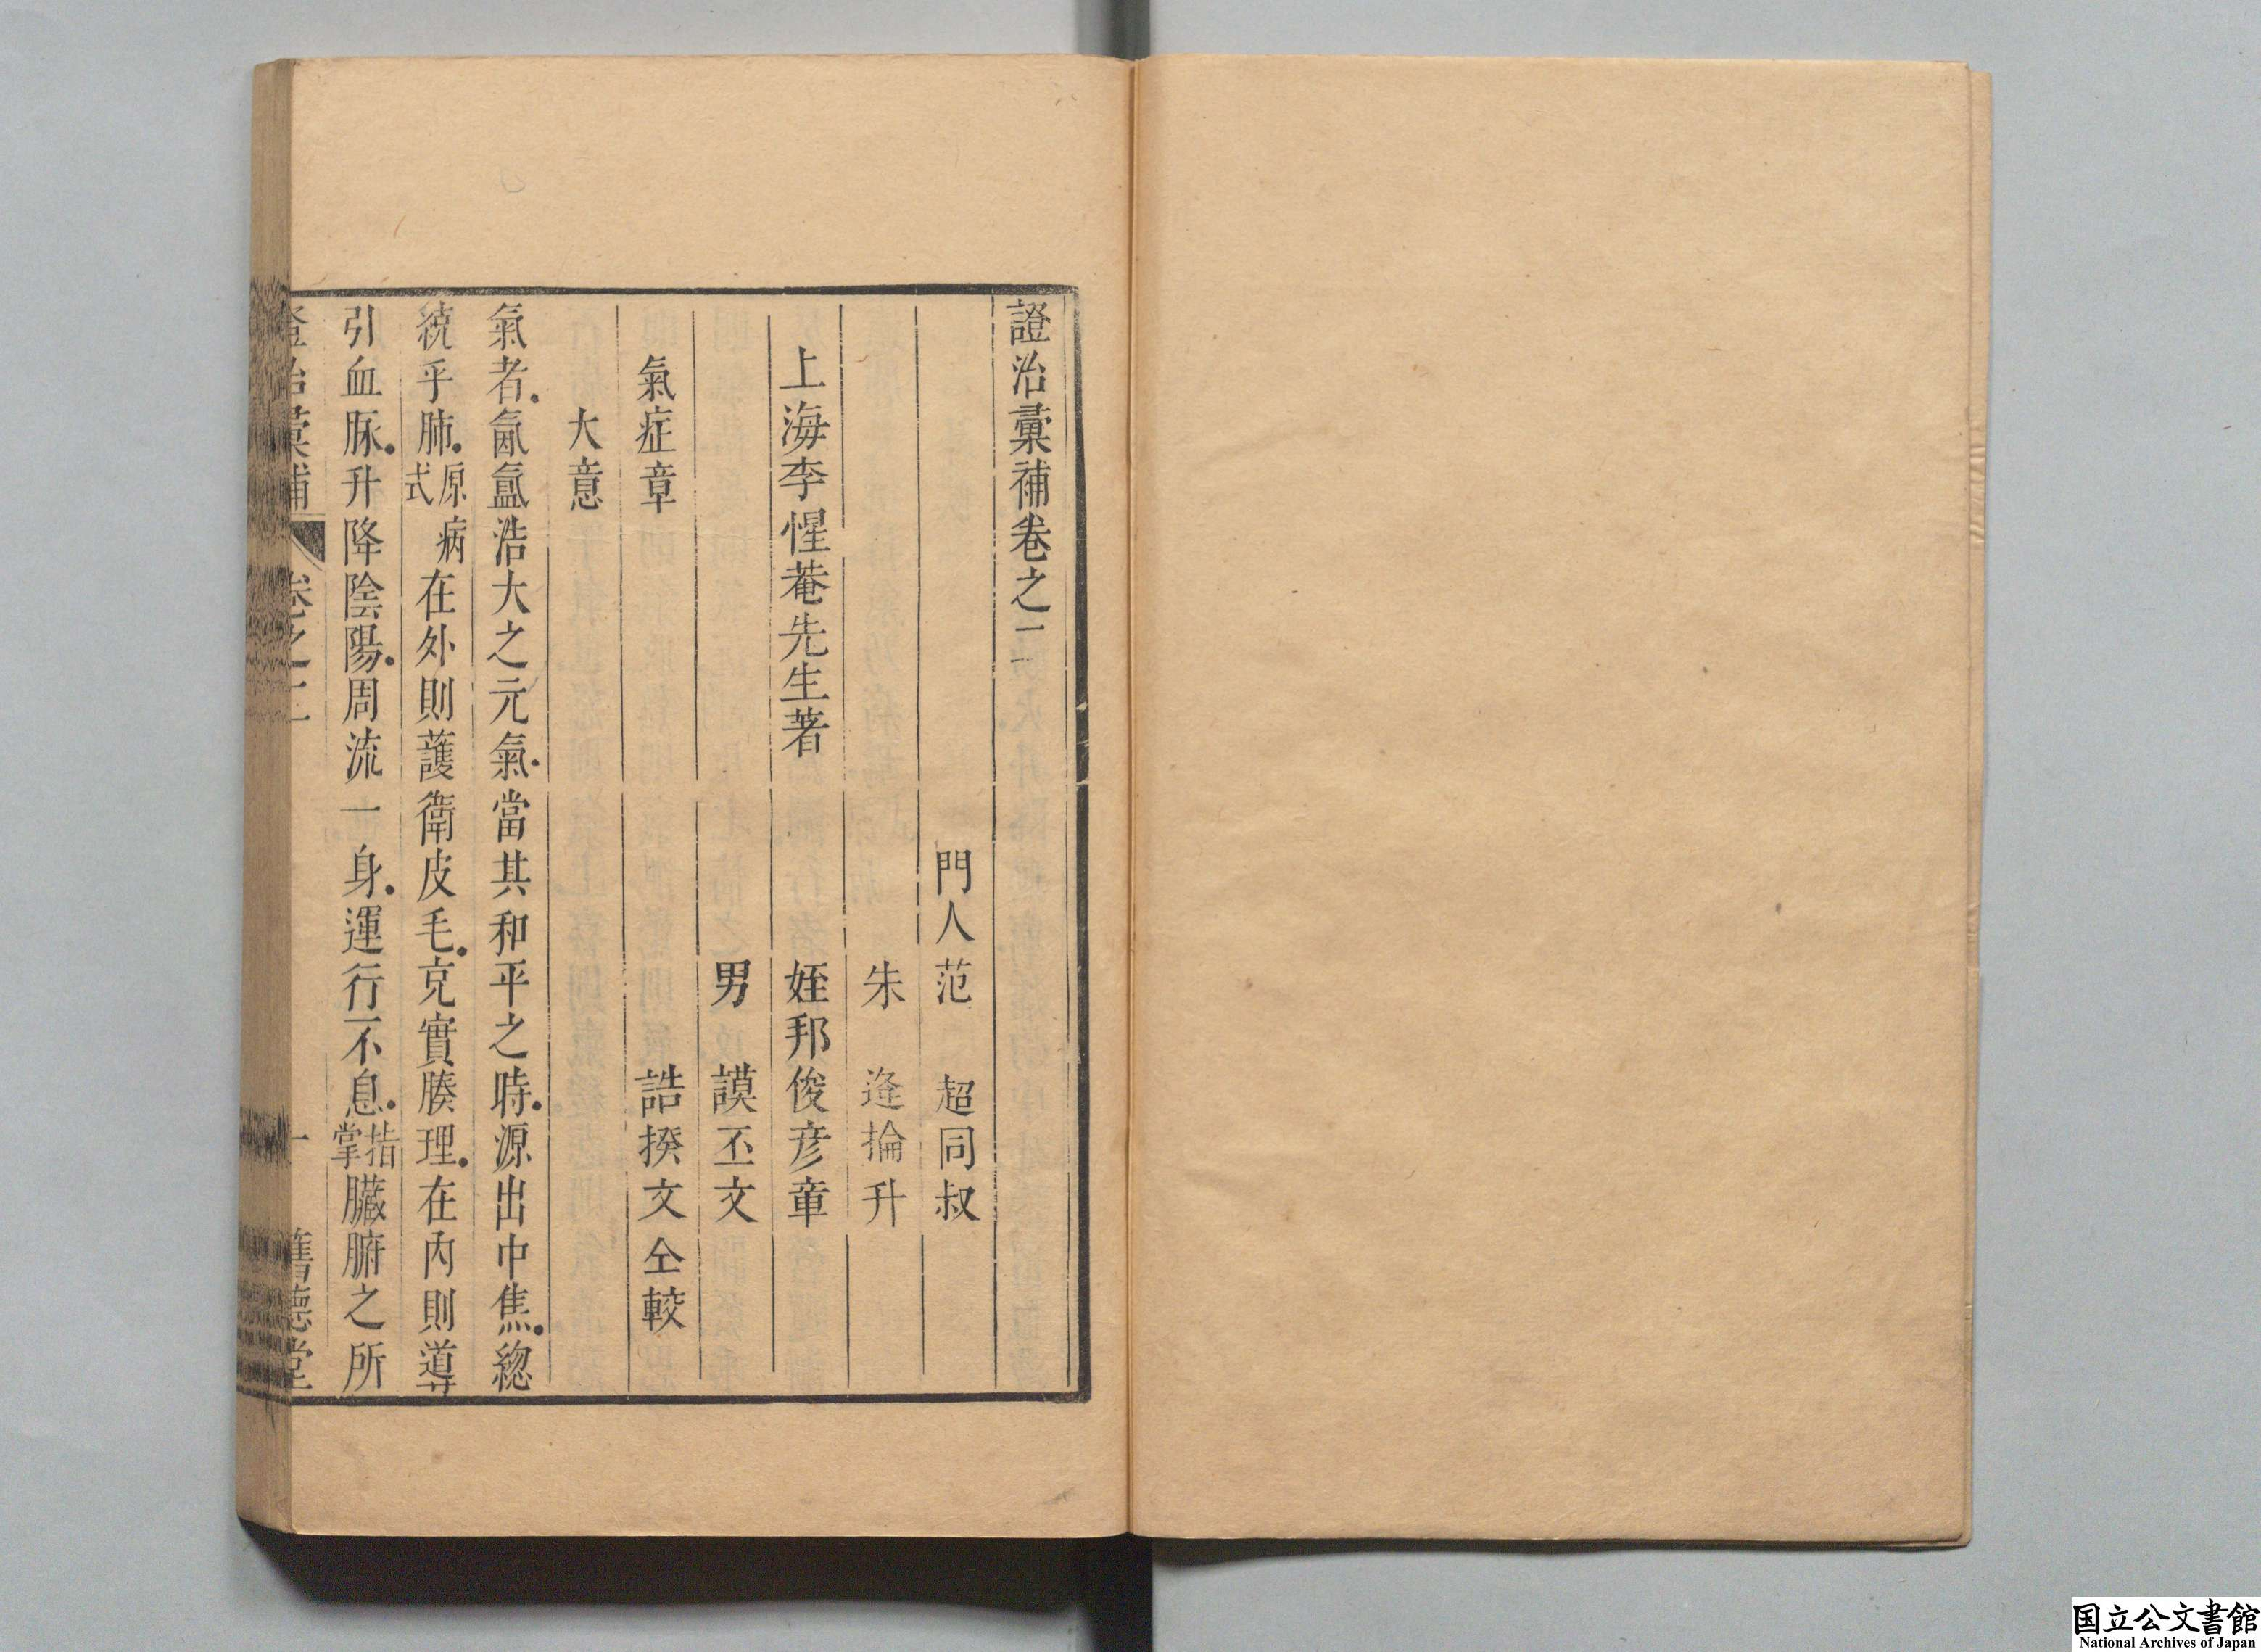 證治彙補卷之二
門人范　超同叔
朱　逢掄升
上海李惺菴先生著　姪邦俊彦章
男　謨丕文
誥揆文仝較
氣症章
大意
氣者氤氳浩大之元氣當其和平之時源出中焦總
統乎肺原病式在外則護衛皮毛充實腠理在内則導
引血脉升降陰陽周流一身運行不息指掌臟腑之所
證治彙補　卷之二　一　舊德堂
国立公文書館
National Archives of Japan